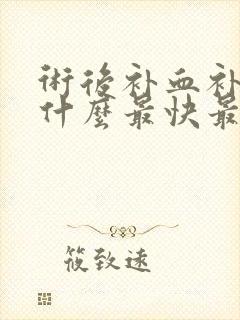 術後补血补
什麼最快最
筱致遠